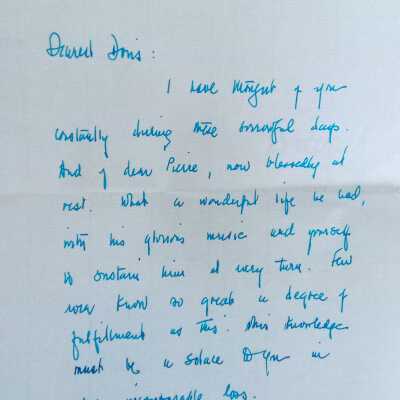 Dearest Doris:
I have thought of you
constantly during these sorrowful days.
And of dear Pierre, now blessedly at
rest. What a wonderful life he had,
with his glorious music and yourself
to sustain him at every turn. Few
ever know so great a degree of
fulfillment as this. This knowledge
must be a solace to you in
incomparable loss.